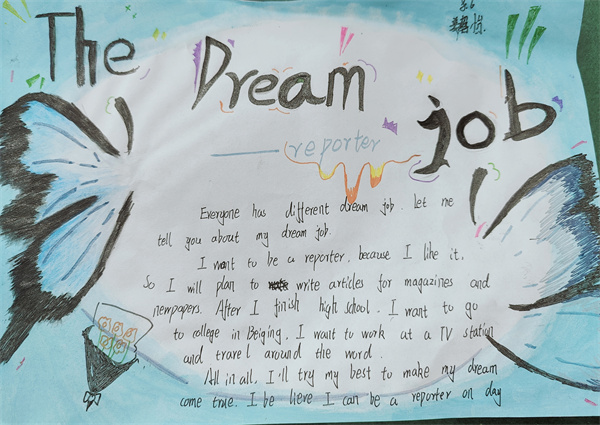 The Dream job
reporter
Everyone has different dream job. Let me
tell you about my dream job.
I want to be a reporter, because I like it.
So I will plan to write articles for magazines and
newpapers. After I finish high school. I want to go
to college in Beiqing. I want to work at a TV station
and travel around the word.
All in all, I'll try my best to make my dream
come true. I be liere I can be a reporter on day